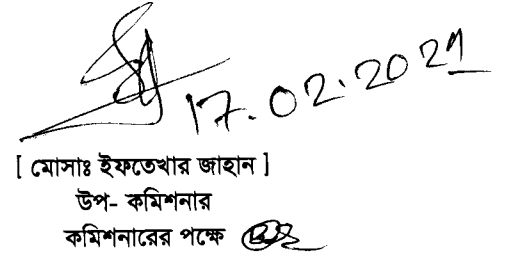 17.02.2021
[ মোসাঃ ইফতেখার জাহান ]
উপ- কমিশনার
কমিশনারের পক্ষে